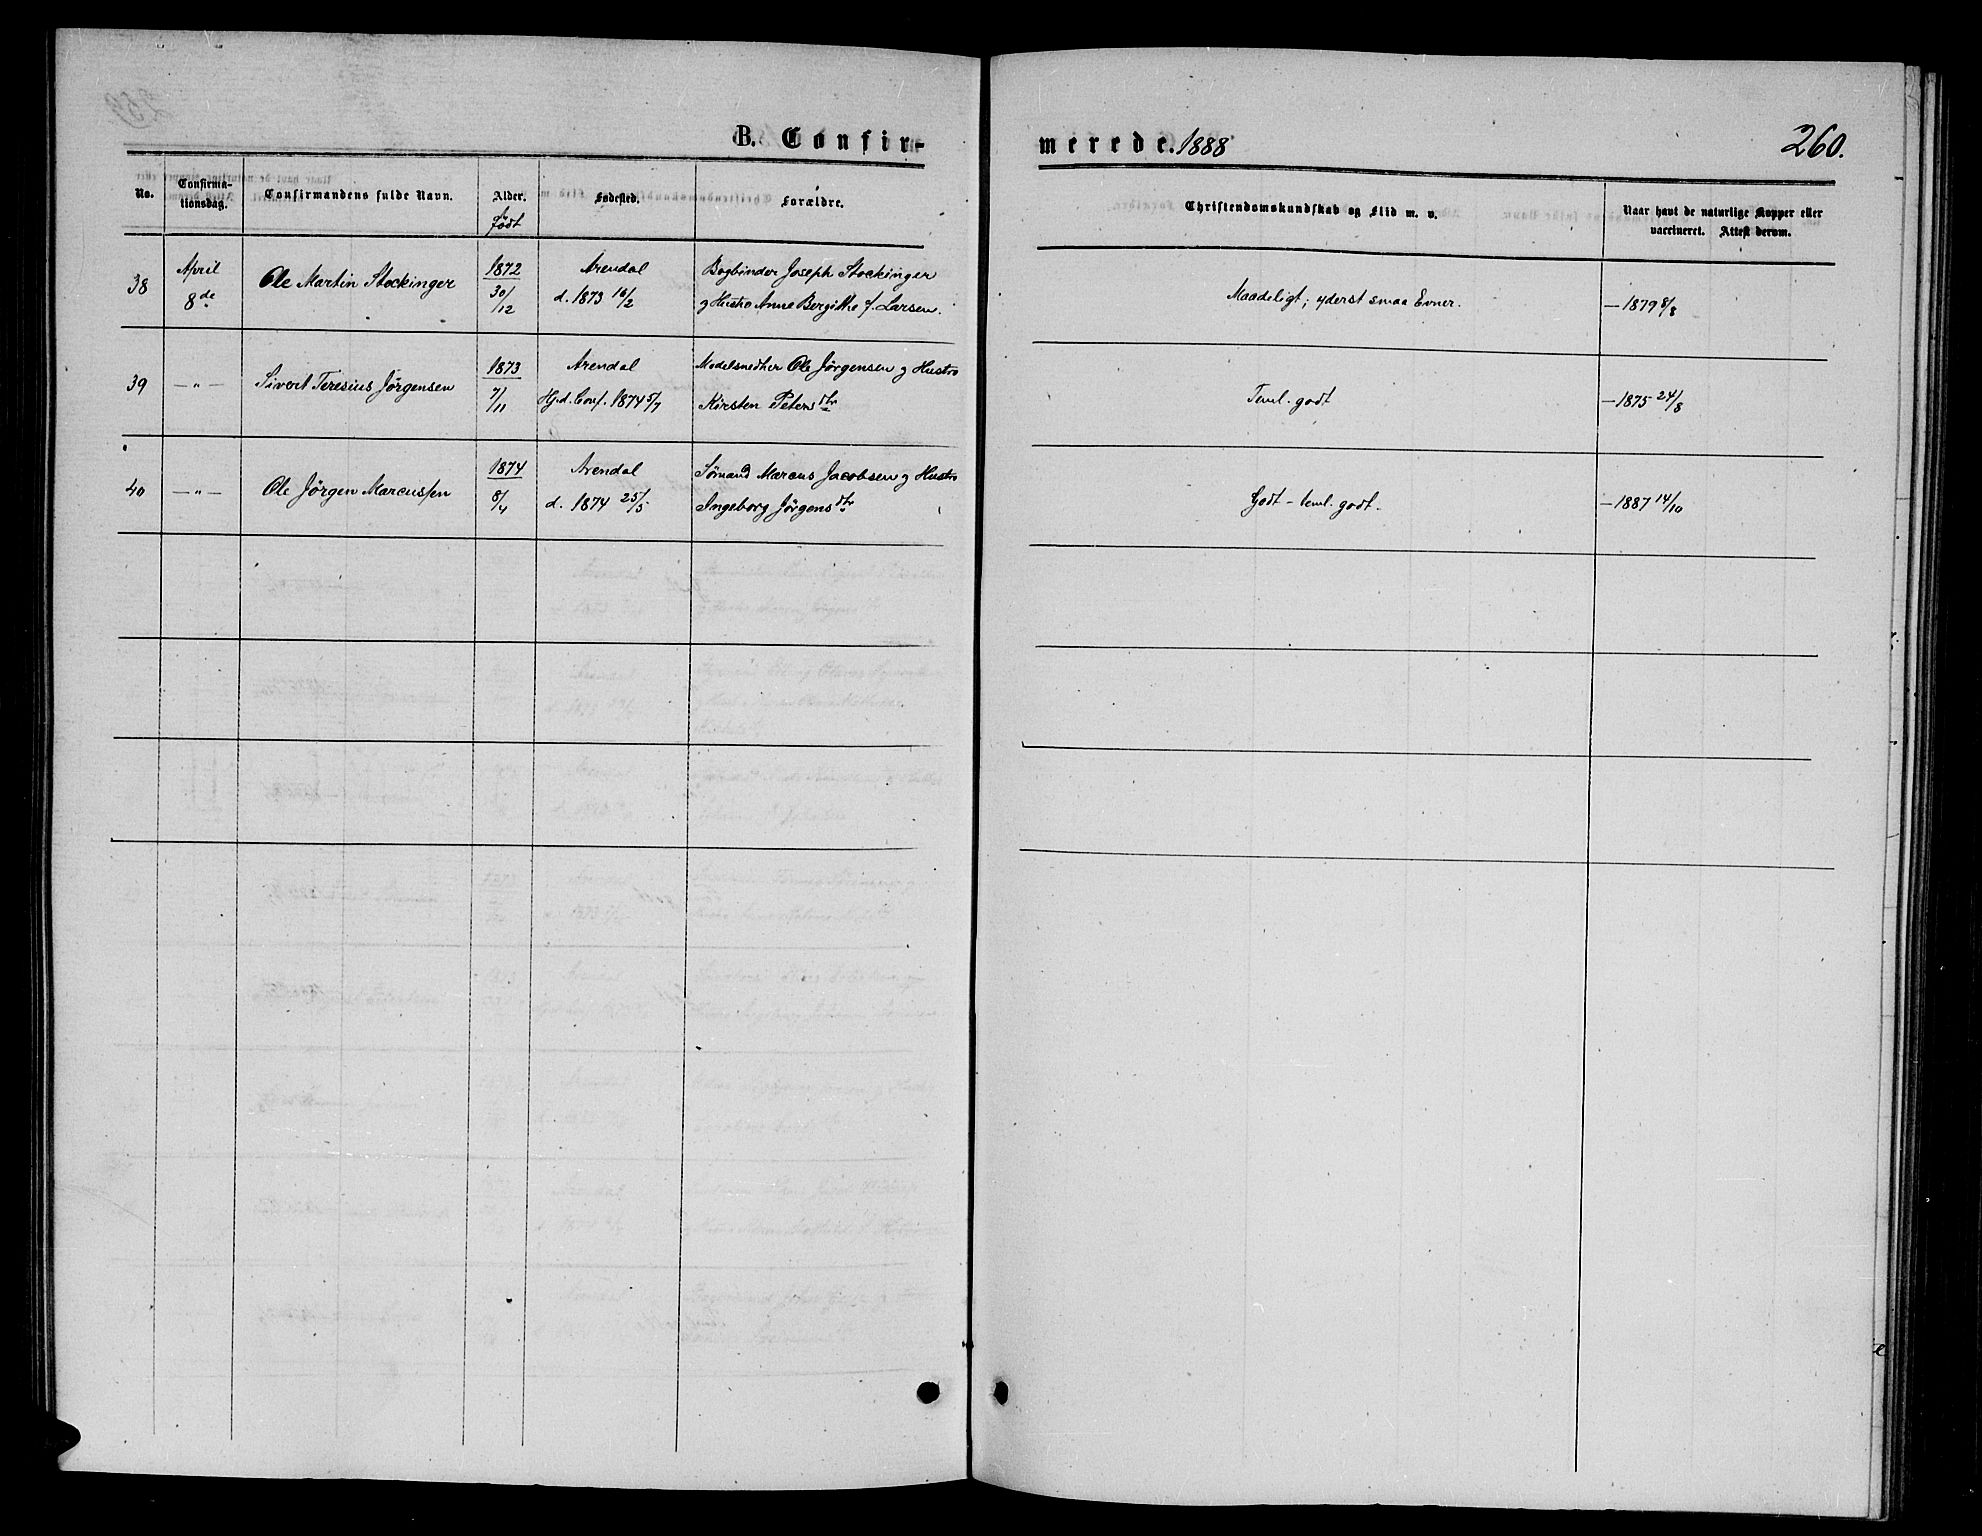 B. Confir-
merede. 1888
260.
No.
Confirma-
tionsdag.
Confirmandens fulde Navn.
Alder.
født
Fødested.
Forældre.
Christendomskundskab og Flid m. v.
Naar havt de naturlige Kopper eller
vaccineret. Attest derom.
38
April
8de
Ole Martin Stockinger
1872
30/12
Arendal
d. 1873 16/2
Bogbinder Joseph Stockinger
og Hustro Anne Bergitte f. Larsen.
Maadeligt; yderst smaa Evner.
— 1879 8/8
39
— " —
Sivert Teresius Jörgensen
1873
7/11
Arendal
Hj.d. Conf. 1874 5/7
Modelsnedker Ole Jörgensen og Hustro
Kirsten Petersdtr
Teml. godt
— 1875 24/8
40
— " —
Ole Jörgen Marcussen
1874
8/4
Arendal
d. 1874 25/5
Sømand Marcus Jacobsen og Hustro
Ingeborg Jörgensdtr
Godt - teml. godt.
— 1887 14/10